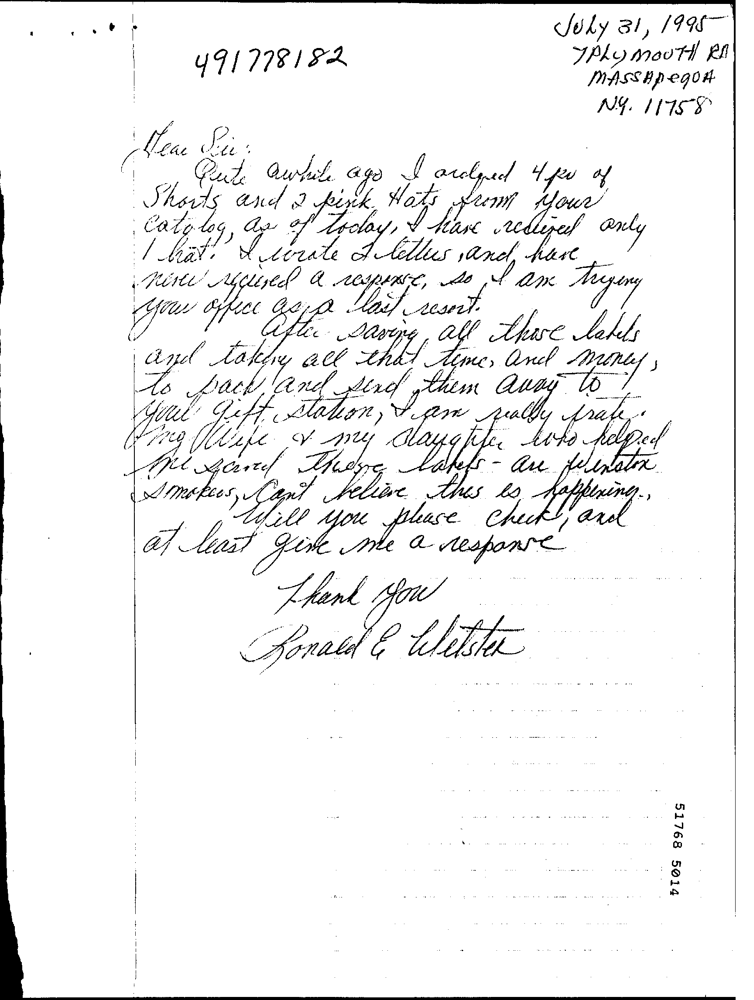 July 31, 1995
7 Plymouth Rd
Massapequa
N.Y. 11758
491778182
Dear Sir:
Quite awhile ago I ordered 4 pr of
Shorts and 2 pink Hats from your
catolog, as of today, I have recieved only
1 hat. I wrote 2 letters, and have
never recieved a response, so I am trying
your office as a last resort.
After saving all those labels
and taking all that time, and money,
to pack and send them away to
your gift station, I am really irate.
My Wife & my daughter who helped
me saved these labels - are Winston
smokers, Can't believe this is happening.
Will you please check, and
at least give me a response
Thank you
Ronald E Webster
51768 5014